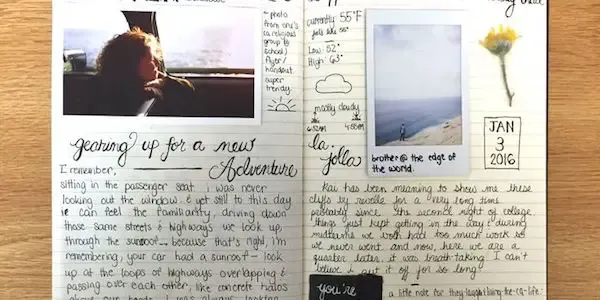 * photo
from one's
religious
group @
school)
flyer/
handout.
super
trendy.
gearing up for a new
Adventure
I remember,
sitting in the passenger seat. i was never
looking out the window. & yet still to this day
i can feel the familiarity, driving down
those same streets & highways we look up,
through the sunroof — because that's right, i'm
remembering, your car had a sunroof — look
up at the loops of highways overlapping &
passing over each other, like concrete halos
above our heads. I was always looking
currently: 55°F
feels like 55°
Low: 52°
High: 63°
mostly cloudy
6:52AM
4:55PM
la
jolla
brother @ the edge of
the world.
JAN
3
2016
Kai has been meaning to show me these
cliffs by revelle for a very long time.
probably since the second night of college.
things just kept getting in the way & during
midterms we both had too much work so
we never went and now, here we are a
quarter later. it was breath taking. I can't
believe i put it off for so long.
you're
a little note for they laugh